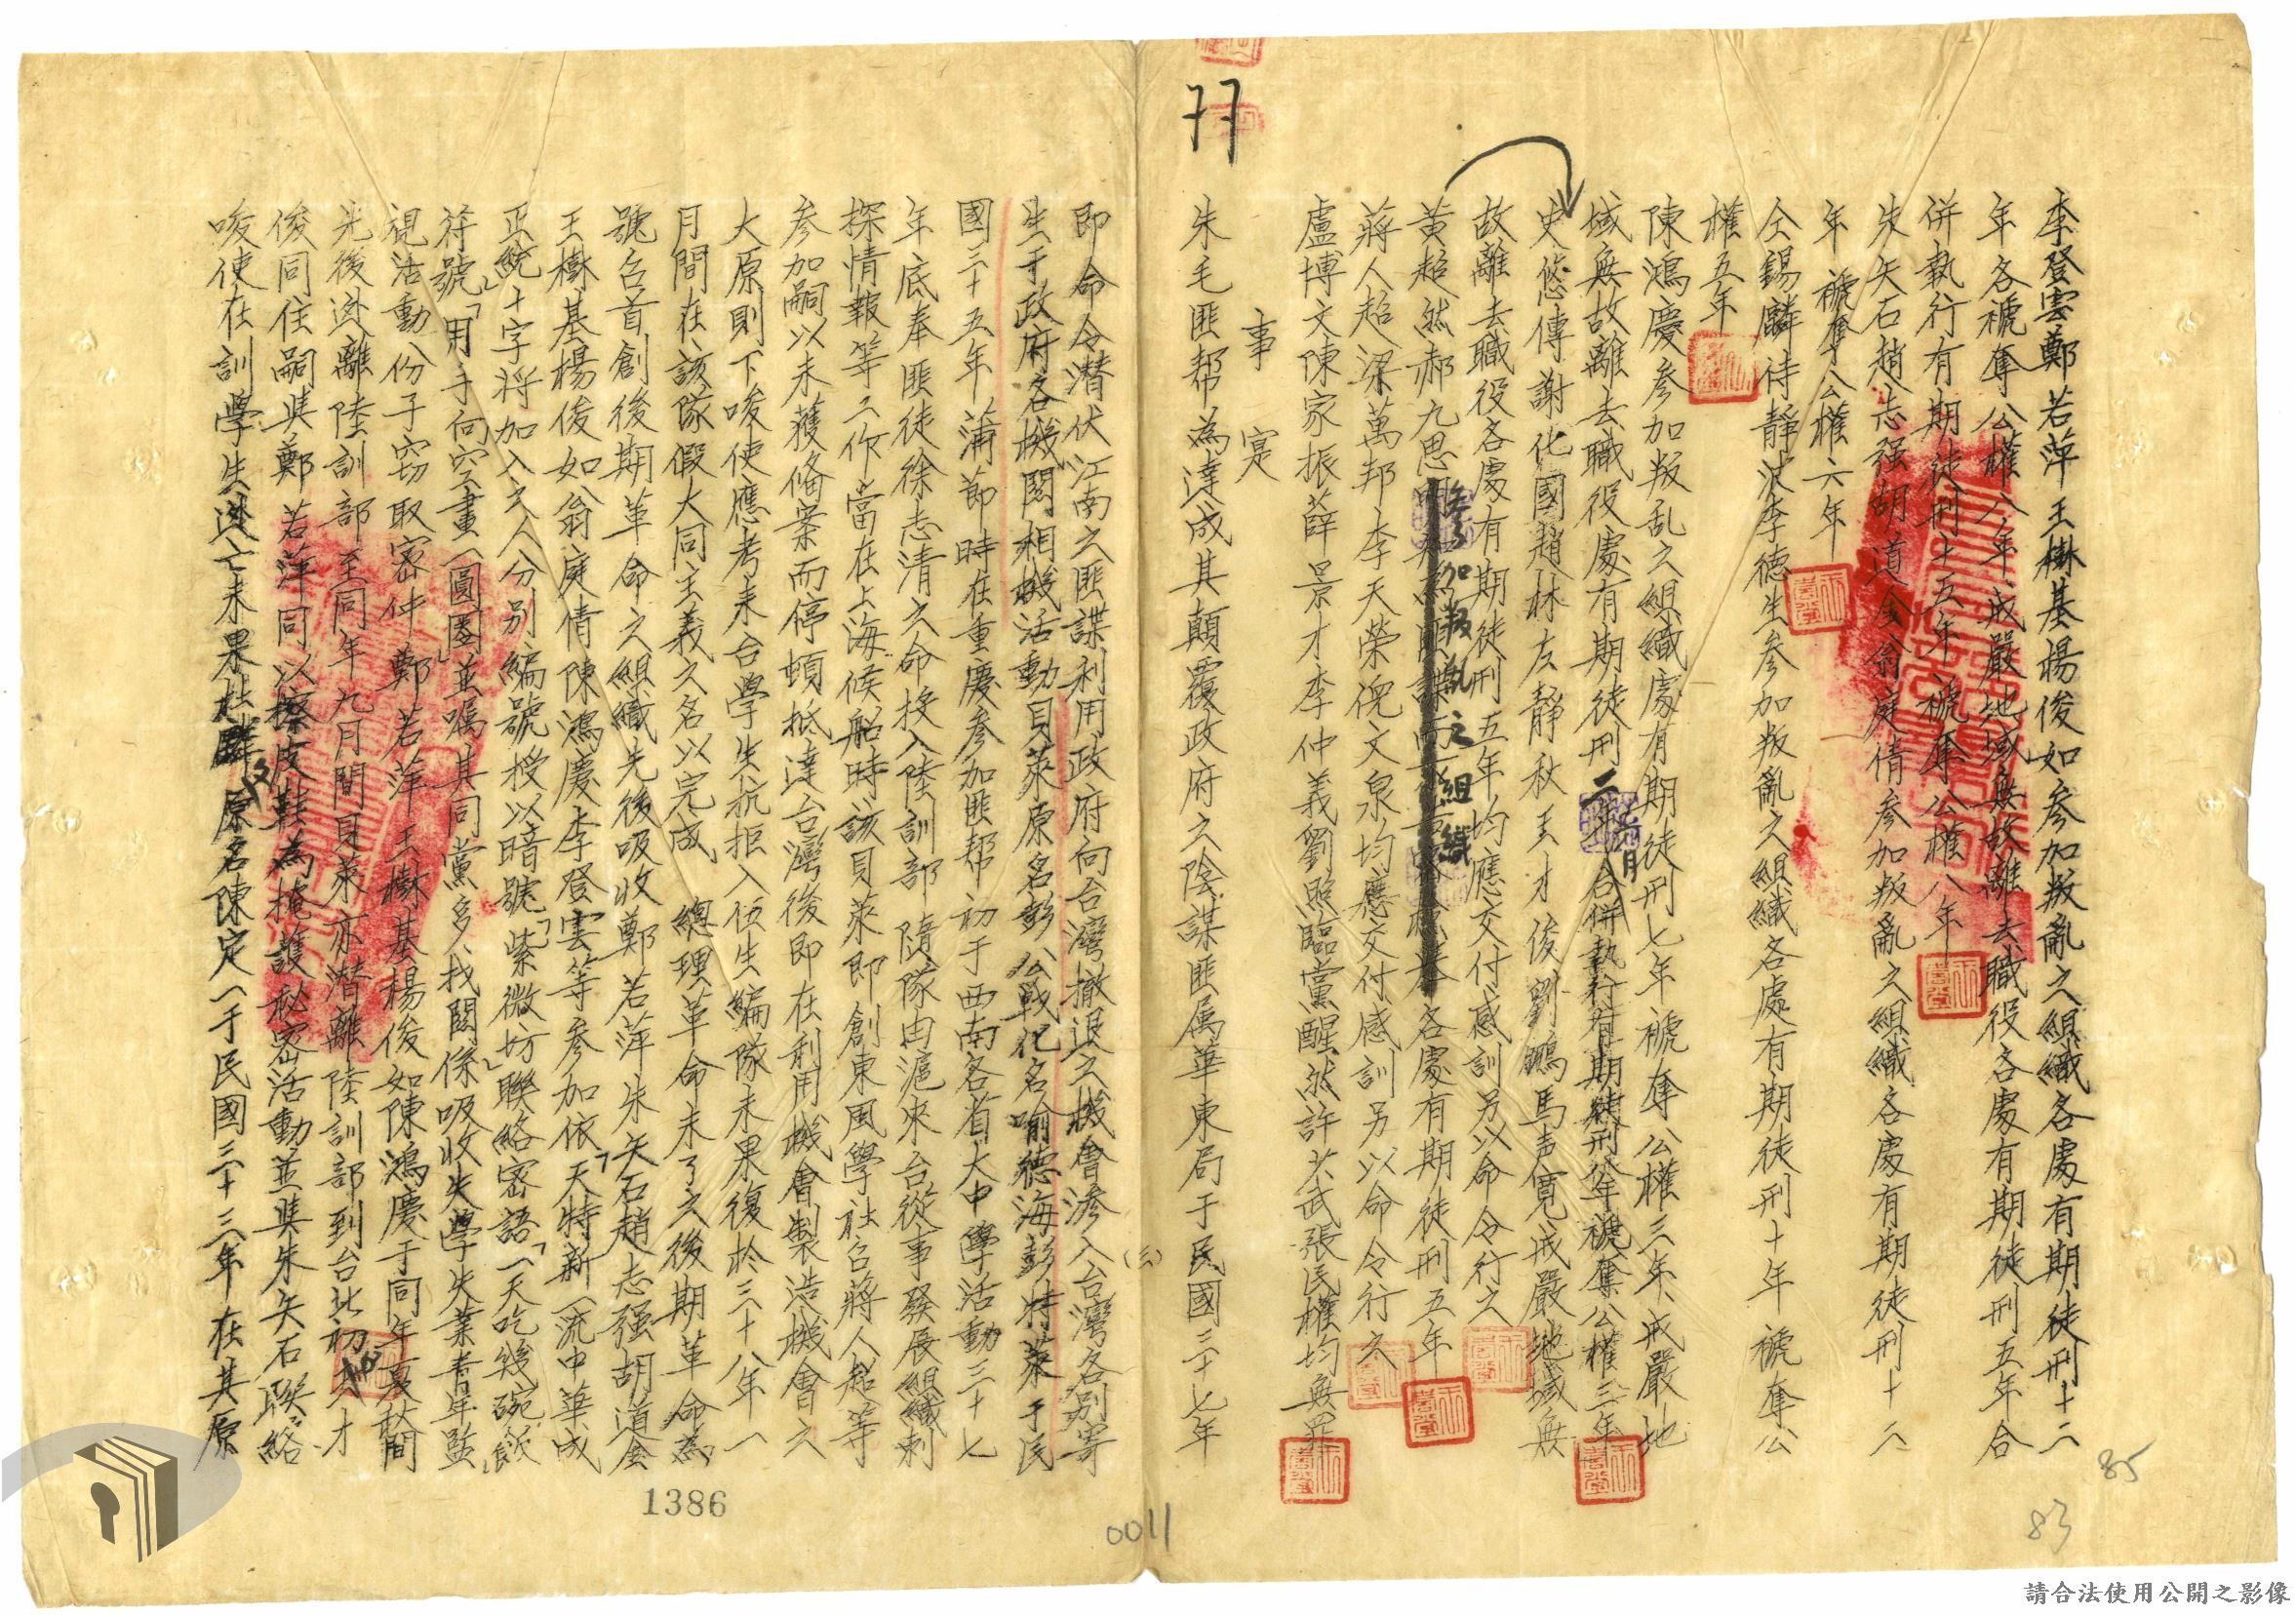 李登雲鄭若萍王樹基楊俊如参加叛亂之組織各處有期徒刑十二
年各褫奪公權八年戒嚴地域無故離去職役各處有期徒刑五年合
併執行有期徒刑十五年褫奪公權八年
朱矢石趙志强胡道金翁庭倩参加叛亂之組織各處有期徒刑十二
年褫奪公權六年
仝錫麟待靜波李德生参加叛亂之組織各處有期徒刑十年褫奪公
權五年
陳鴻慶参加叛乱之組織處有期徒刑七年褫奪公權三年戒嚴地
域無故離去職役處有期徒刑二年 月合併執行有期徒刑 年褫奪公權三年
史悠傳謝化國趙林友靜秋王才俊劉鵬馬声寛戒嚴地域無
故離去職役各處有期徒刑五年均應交付感訓另以命令行之
黃超然郝九思参加叛亂之組織各處有期徒刑五年
蔣人超梁萬邦李天榮倪文泉均應交付感訓另以命令行之
盧博文陳家振薛景才李仲義劉照臨黨醒然許大武張民權均無罪
事 寔
朱毛匪帮為達成其顛覆政府之陰謀匪属華東局于民國三十七年
即命令潜伏江南之匪諜利用政府向台灣撤退之機會滲入台灣各别寄
生于政府各機関相機活動貝萊原名彭公戰化名喻德海彭特萊于民
國三十五年蒲節時在重慶参加匪帮初于西南各省大中學活動三十七
年底奉匪徒徐志清之命投入陸訓部隨隊由滬來台從事發展組織刺
探情報等工作當在上海候船時該貝萊即創東風學社召蔣人超等
参加嗣以未獲俻案而停頓抵達台灣後即在利用機會製造機會之
大原則下唆使應考來台學生抗拒入伍生編隊未果復於三十八年一
月間在該隊假大同主義之名以完成 總理革命未了之後期革命為
號召首創後期革命之組織先後吸收鄭若萍朱矢石趙志强胡道金
王樹基楊俊如翁庭倩陳鴻慶李登雲等参加依「天特新一流中華成
正統」十字將加入之人分别編號授以暗號「紫微坊」聯絡密語「一天吃幾碗飯」
符號「用手向空畫一圓圈」並嘱其同黨多找関係吸收失學失業青年監
視活動份子窃取密件鄭若萍王樹基楊俊如陳鴻慶于同年夏秋間
先後逃離陸訓部至同年九月間貝萊亦潜離陸訓部到台北初與王才
俊同住嗣與鄭若萍同以擦皮鞋為掩護秘密活動並與朱矢石聯絡
唆使在訓學生逃亡未果 原名陳定一于民國三十三年在其原
77
(三)
1386
0011
85
83
請合法使用公開之影像